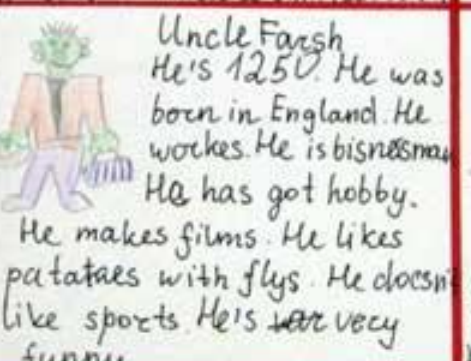 Uncle Farsh
He's 1250. He was
born in England. He
workes. He is bisnesman
He has got hobby.
He makes films. He likes
patataes with flys. He doesn't
like sports. He's very
funny